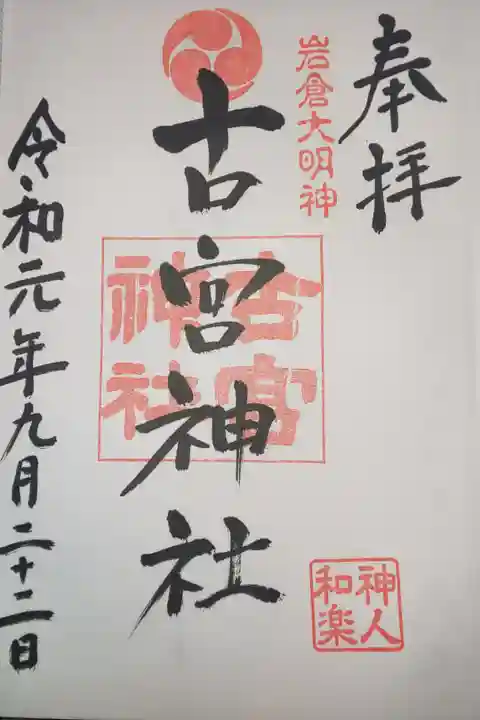 奉拝
岩倉大明神
古宮神社
古宮神社
神人和楽
令和元年九月二十二日